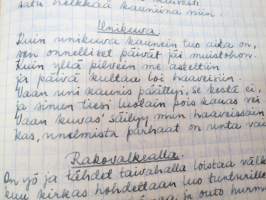 satu heikkää kauniina niin.
Unikuva
Kuin unikuva kaunein tuo aika on,
sen onnelliset päivät jäi muistohon.
Kuin yllä pilvein me asteltiin
ja päivä kultaa loi haaveisiin.
Vaan uni kaunis päättyi, se kestä ei,
ja sinun tiesi luotain pois kauas vei
Vaan kuvas' säilyy mun haaveissain
kas, unelmista parhaat on unta vain
Rakovalkealla.
On yö ja tähdet taivahalla loistaa
kuu kirkas hohdettaan luo tunturille
ja outo hurma